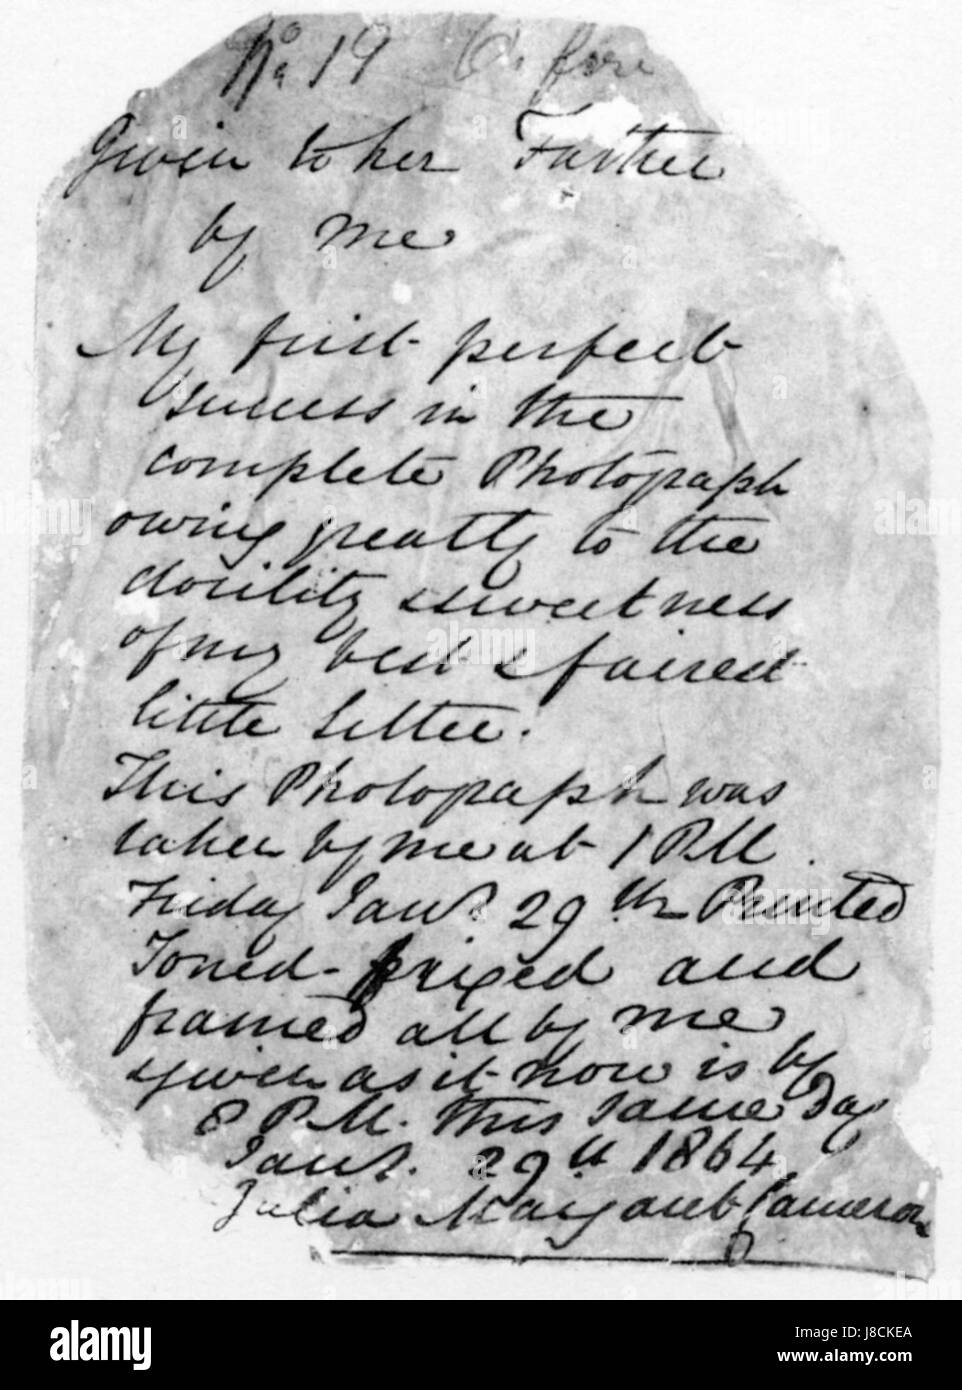 No 19
Given to her Father
by me
My first perfect
success in the
complete Photograph
owing greatly to the
docility & sweetness
of my best & fairest
little sitter.
This Photograph was
taken by me at 1 P.M.
Friday Jany. 29th Printed
Toned - fixed and
framed all by me
given as it now is by
8 P.M. this same day
Jany. 29th 1864
Julia Margaret Cameron
alamy
Image ID: J8CKEA
www.alamy.com